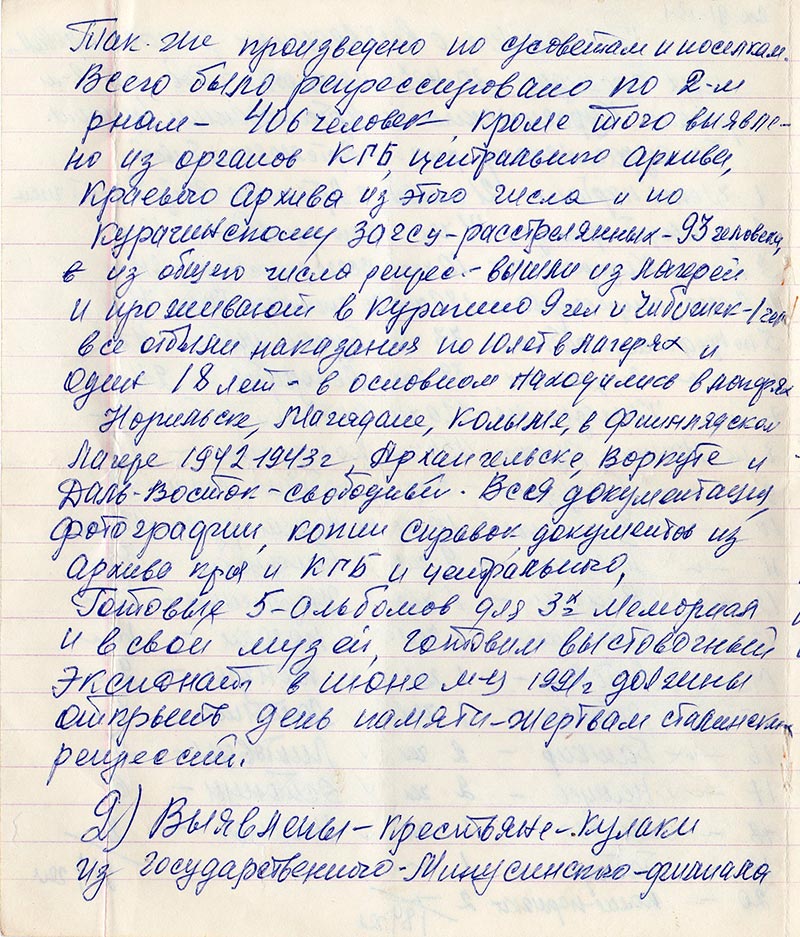 Так же произведено по с/советам и поселкам.
Всего было репрессировано по 2-м
рнам – 406 человек, кроме того выявле-
но из органов КГБ, центрального Архива,
Краевого Архива из этого числа и по
Курагинскому Загсу – расстрелянных – 93 человека,
из общего числа репрес. – вышли из лагерей
и проживают в Курагино 9 чел и Чибижек – 1 чел
все отбыли наказания по 10 лет в лагерях и
один 18 лет – в основном находились в лагерях
Норильске, Магадане, Колыме, в Финляндском
Лагере 1942 1943 г, Архангельске, Воркуте и
Даль-Восток – свободный. Вся документация,
фотографии, копии справок документов из
Архива края и КГБ и центрального,
Готовые 5 – альбомов для 3х Мемориала
и в свой музей, готовим выстовочный
Экспонат, в июне м-ц 1991 г должны
открыть день памяти – жертвам сталинских
репрессий.
2) Выявлены – крестьяне – кулаки
из государственного – Минусинского – филиала